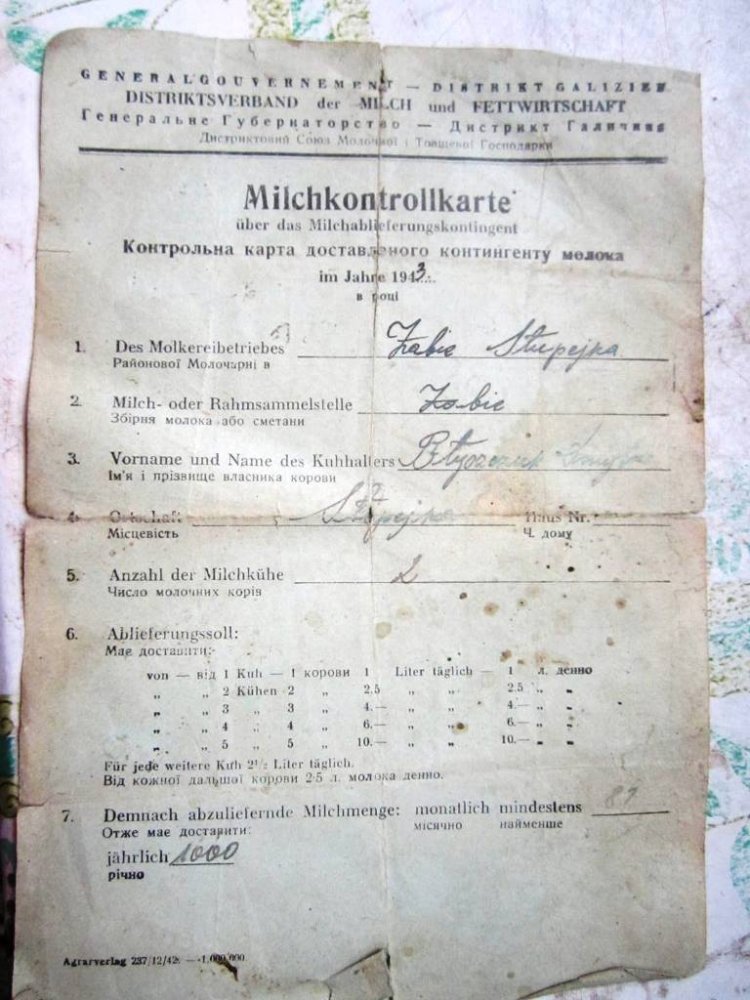 GENERALGOUVERNEMENT — DISTRIKT GALIZIEN
DISTRIKTSVERBAND der MILCH und FETTWIRTSCHAFT
Генеральне Губернаторство — Дистрикт Галичина
Дистриктовий Союз Молочної і Товщевої Господарки
Milchkontrollkarte
über das Milchablieferungskontingent
Контрольна карта доставленого контингенту молока
im Jahre 1943
в році
1. Des Molkereibetriebes Zabie Stupejka
Районової Молочарні в
2. Milch- oder Rahmsammelstelle Zabie
Збірня молока або сметани
3. Vorname und Name des Kuhhalters
Ім'я і прізвище власника корови
4. Ortschaft Stupejka Haus Nr.
Місцевість Ч. дому
5. Anzahl der Milchkühe 2
Число молочних корів
6. Ablieferungssoll:
Має доставити:
von — від 1 Kuh — 1 корови 1 Liter täglich — 1 л. денно
„ „ 2 Kühen 2 „ 2.5 „ „ 2.5 „ „
„ „ 3 „ 3 „ 4.— „ „ 4.— „ „
„ „ 4 „ 4 „ 6.— „ „ 6.— „ „
„ „ 5 „ 5 „ 10.— „ „ 10.— „ „
Für jede weitere Kuh 2½ Liter täglich.
Від кожної дальшої корови 2·5 л. молока денно.
7. Demnach abzuliefernde Milchmenge: monatlich mindestens
Отже має доставити: місячно найменше
jährlich 1000
річно
Agrarverlag 237/12/42. — 1,000.000